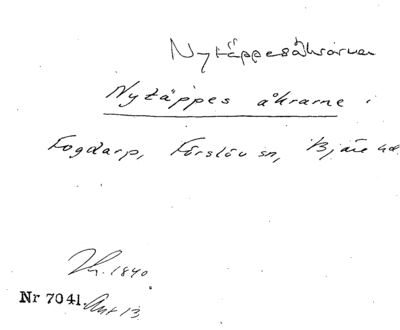 Nytäppesåkrarna
Nytäppes åkrarne i
Fogdarp, Förslöv sn, Bjäre hd.
1840
Nr 7041. Akt 13.